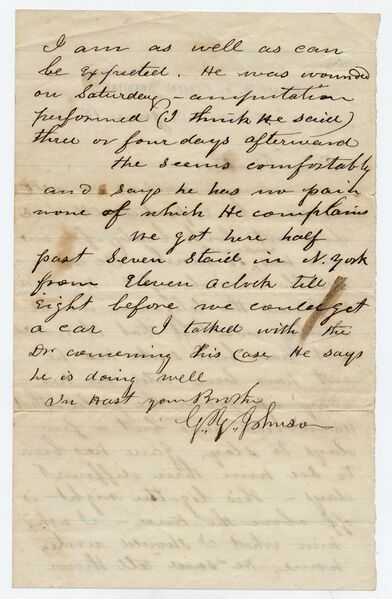 I am as well as can
be Expected. He was wounded
on Saturday - amputation
performed (I think He said)
three or four days afterward
the seems comfortably
and says he has no pain
none of which He complains
We got here half
past Seven Staid in N. York
from Eleven aclock till
Eight before we could get
a car I talked with the
Dr concerning his case He says
he is doing well
In Hast your Brother
Johnson